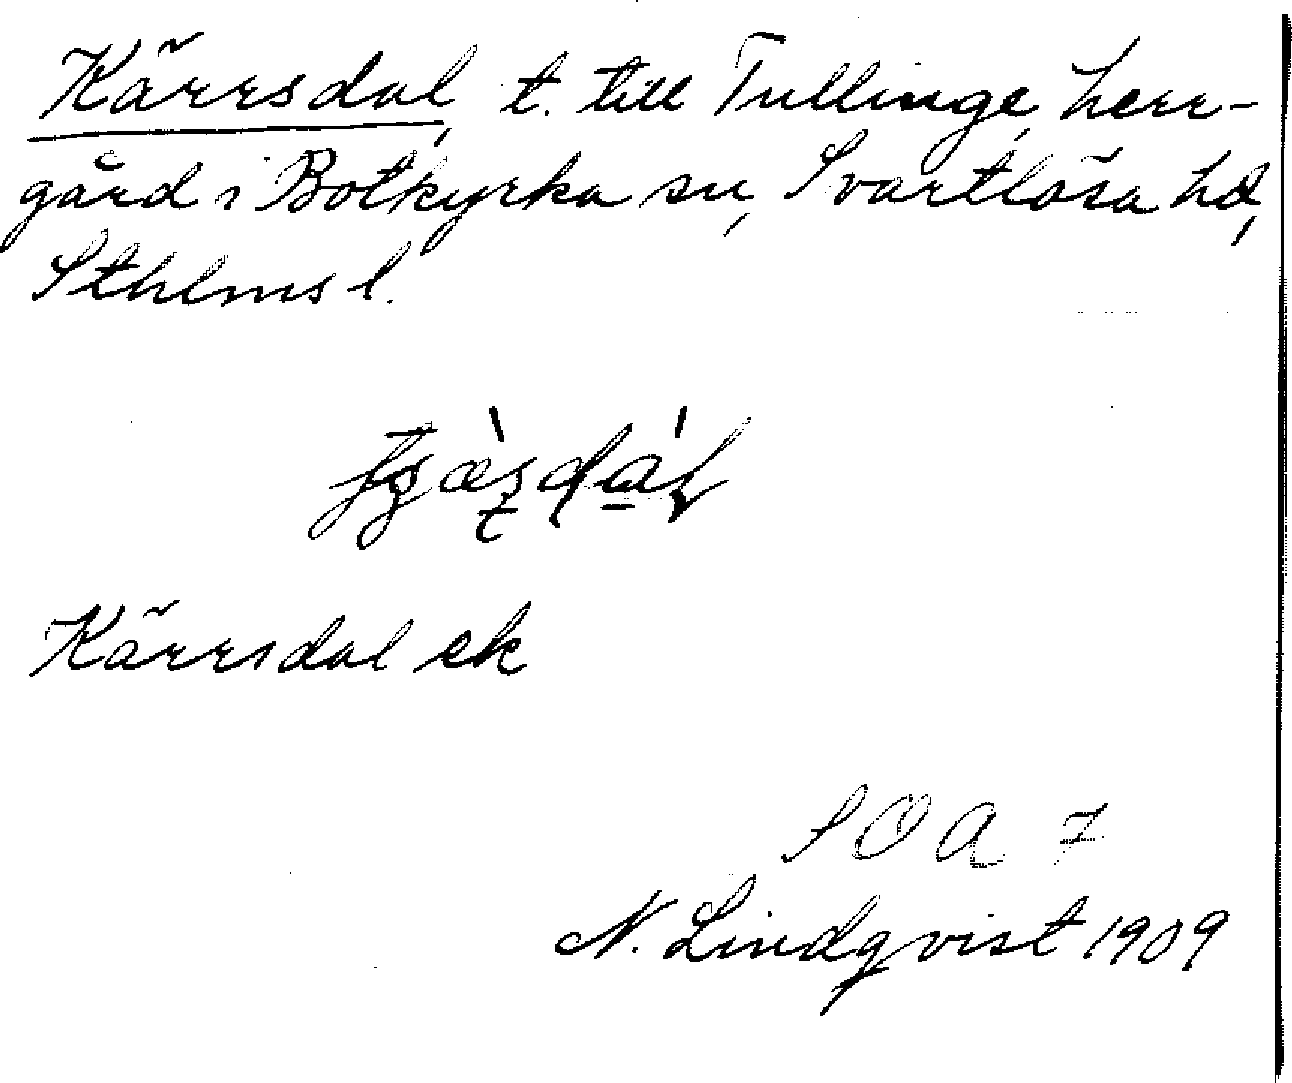 Kärrsdal, t. till Tullinge, herr-
gård i Botkyrka sn, Svartlösa hd,
Sthlms l.
Kärrsdal ek
SOA 7
N. Lindqvist 1909